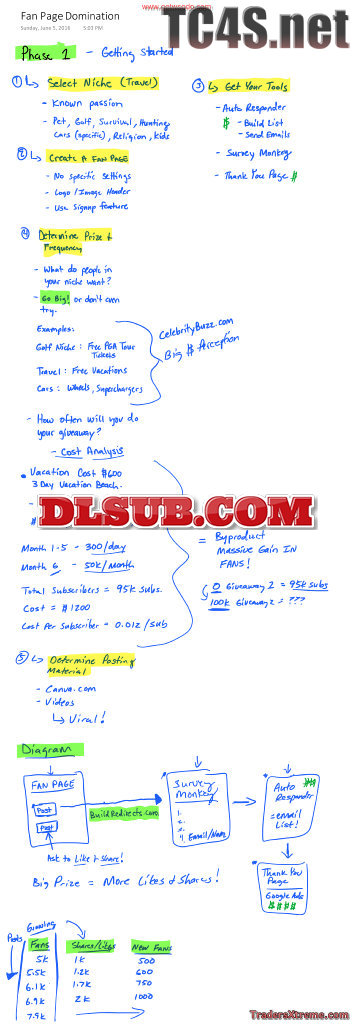 www.gotwcodo.com
Fan Page Domination
TC4S.net
Sunday, June 5, 2016 5:03 PM
Phase 1 - Getting Started
① ↳ Select Niche (Travel)
- Known passion
- Pet, Golf, Survival, Hunting
Cars (specific), Religion, Kids
② ↳ Create a Fan Page
- No specific settings
- Logo / Image Header
- Use Signup feature
③ ↳ Get Your Tools
- Auto Responder
$ - Build List
- Send Emails
- Survey Monkey
- Thank You Page $
④ Determine Prize &
Frequency
- What do people in
your niche want?
- Go Big! or don't even
try.
Examples:
Golf Niche : Free PGA Tour
Tickets
Travel : Free Vacations
Cars : Wheels, Superchargers
CelebrityBuzz.com
Big $ Perception
- How often will you do
your giveaway?
- Cost Analysis
• Vacation Cost $600
3 Day Vacation Beach.
DLSUB.COM
Month 1-5 - 300/day
Month 6 - 50K/Month
Total Subscribers = 95K subs.
Cost = $1200
Cost Per Subscriber = 0.012/sub
= Byproduct
Massive Gain In
FANS!
0 Giveaway 2 = 95K subs
100K Giveaway 2 = ???
⑤ ↳ Determine Posting
Material
- Canva.com
- Videos
↳ Viral!
Diagram
FAN PAGE
Post
Post
BuildRedirects.com
Survey
Monkey
1.
2.
3.
4. Email/Name
Auto $$
Responder
=email
List!
Ask to Like & Share!
Big Prize = More Likes & Shares!
Thank You
Page
Google Ads
$$$$
Running
Posts
Fans Shares/Likes New Fans
5K 1K 500
5.5K 1.2K 600
6.1K 1.7K 750
6.9K 2K 1000
7.9K
TradersXtreme.com